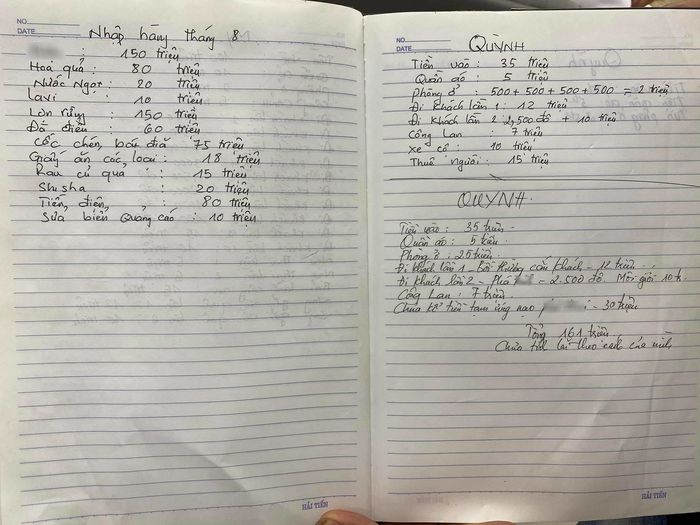 NO.
DATE
Nhập hàng tháng 8
: 150 triệu
Hoa quả : 80 triệu
Nước Ngọt : 20 triệu
Lavi : 10 triệu
Lợn rừng : 150 triệu
Đà điểu : 60 triệu
Cốc chén, bát đĩa 75 triệu
Giấy ăn các loại : 18 triệu
Rau củ quả : 15 triệu
Shisha : 20 triệu
Tiền điện : 80 triệu
Sửa biển Quảng cáo : 10 triệu
HẢI TIẾN
NO.
DATE
QUỲNH
Tiền vào : 35 triệu
Quần áo : 5 triệu
Phòng ở : 500 + 500 + 500 + 500 = 2 triệu
Đi Khách lần 1 : 12 triệu
Đi Khách lần 2 2,500 đô + 10 triệu
Công Lan : 7 triệu
Xe cộ : 10 triệu
Thuê người : 15 triệu
QUỲNH
Tiền vào : 35 triệu
Quần áo : 5 triệu
Phòng ở : 25 triệu
Đi khách lần 1 - Bồi thường cắn khách - 12 triệu
Đi khách lần 2 - Phá = 2.500 đô. Môi giới 10 tr
Công Lan : 7 triệu
Chưa kể tiền tạm ứng - 30 triệu
Tổng 161 triệu
Chưa tính lãi theo cách của mình
HẢI TIẾN